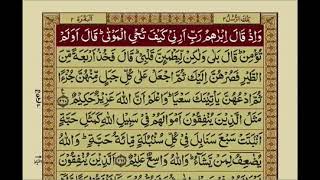 البقرة ٢
تلك الرسل ٣
وَاِذْ قَالَ اِبْرٰهٖمُ رَبِّ اَرِنِيْ كَيْفَ تُحْيِ الْمَوْتٰى قَالَ اَوَلَمْ
تُؤْمِنْ قَالَ بَلٰى وَلٰكِنْ لِّيَطْمَئِنَّ قَلْبِيْ قَالَ فَخُذْ اَرْبَعَةً مِّنَ
الطَّيْرِ فَصُرْهُنَّ اِلَيْكَ ثُمَّ اجْعَلْ عَلٰى كُلِّ جَبَلٍ مِّنْهُنَّ جُزْءًا
ثُمَّ ادْعُهُنَّ يَاْتِيْنَكَ سَعْيًا وَاعْلَمْ اَنَّ اللّٰهَ عَزِيْزٌ حَكِيْمٌ
مَثَلُ الَّذِيْنَ يُنْفِقُوْنَ اَمْوَالَهُمْ فِيْ سَبِيْلِ اللّٰهِ كَمَثَلِ حَبَّةٍ
اَنْۢبَتَتْ سَبْعَ سَنَابِلَ فِيْ كُلِّ سُنْۢبُلَةٍ مِّائَةُ حَبَّةٍ وَاللّٰهُ
يُضٰعِفُ لِمَنْ يَّشَآءُ وَاللّٰهُ وَاسِعٌ عَلِيْمٌ اَلَّذِيْنَ يُنْفِقُوْنَ